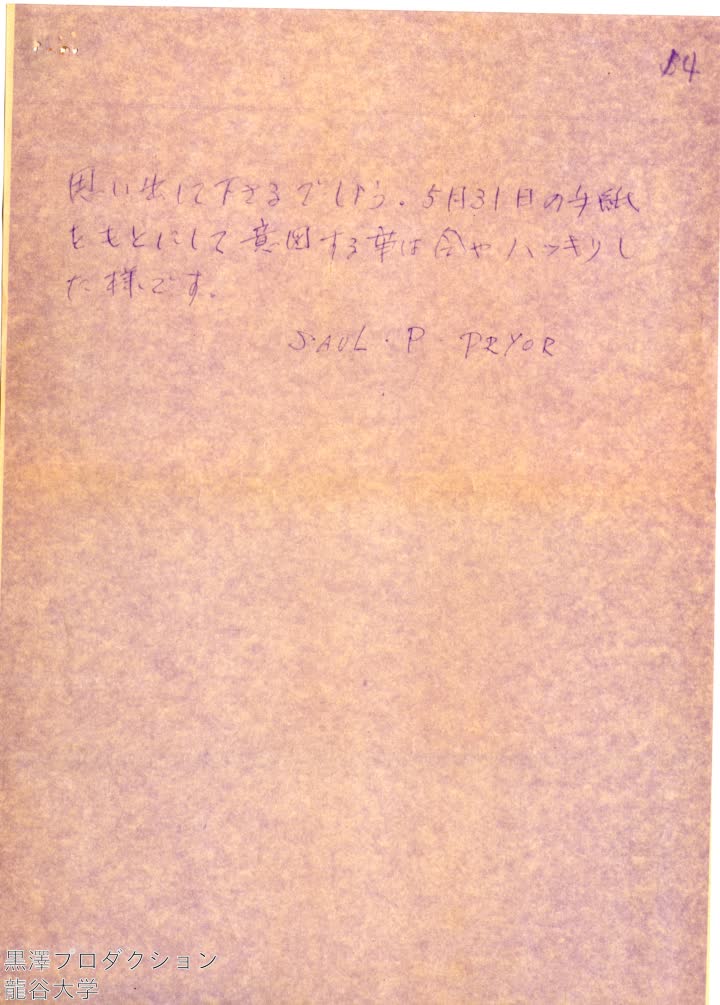 14
思い出して下さるでしょう。5月31日の手紙
をもとにして意図する事は今やハッキリし
た様です。
SAUL・P・PRYOR
黒澤プロダクション
龍谷大学